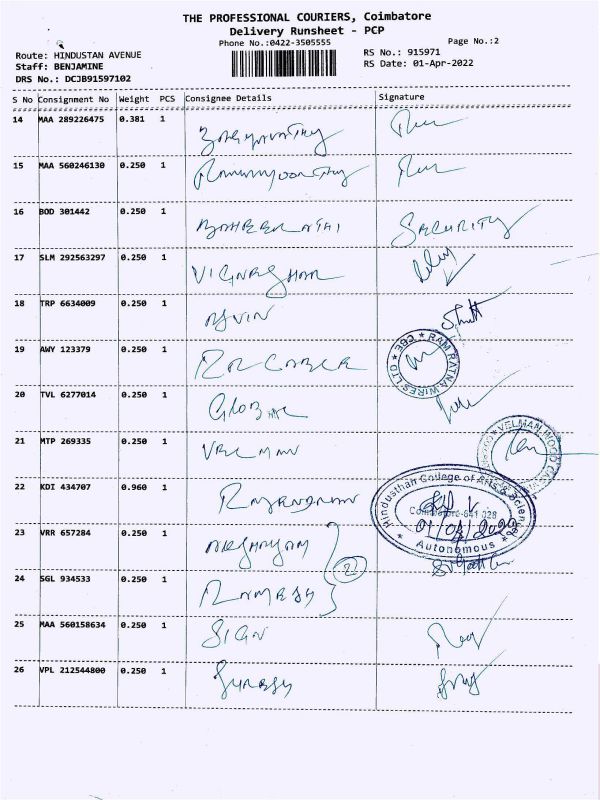 THE PROFESSIONAL COURIERS, Coimbatore
Delivery Runsheet - PCP
Phone No.:0422-3505555
Page No.:2
Route: HINDUSTAN AVENUE
RS No.: 915971
Staff: BENJAMINE
RS Date: 01-Apr-2022
DRS No.: DCJB91597102
S No Consignment No Weight PCS Consignee Details Signature
14 MAA 289226475 0.381 1
15 MAA 560246130 0.250 1
16 BOD 301442 0.250 1 SECURITY
17 SLM 292563297 0.250 1 VIGNESHAR
18 TRP 6634009 0.250 1
19 AWY 123379 0.250 1 RR CABLE RAM RATNA WIRES LTD * CBE *
20 TVL 6277014 0.250 1 GLOBAL
21 MTP 269335 0.250 1 VELMAN VELMAN WOOD
22 KDI 434707 0.960 1 RAJENDRAN Hindusthan College of Arts & Science
Coimbatore-641 028
* Autonomous *
23 VRR 657284 0.250 1
24 SGL 934533 0.250 1 RAMESH
25 MAA 560158634 0.250 1 SIGN
26 VPL 212544800 0.250 1 SURESH